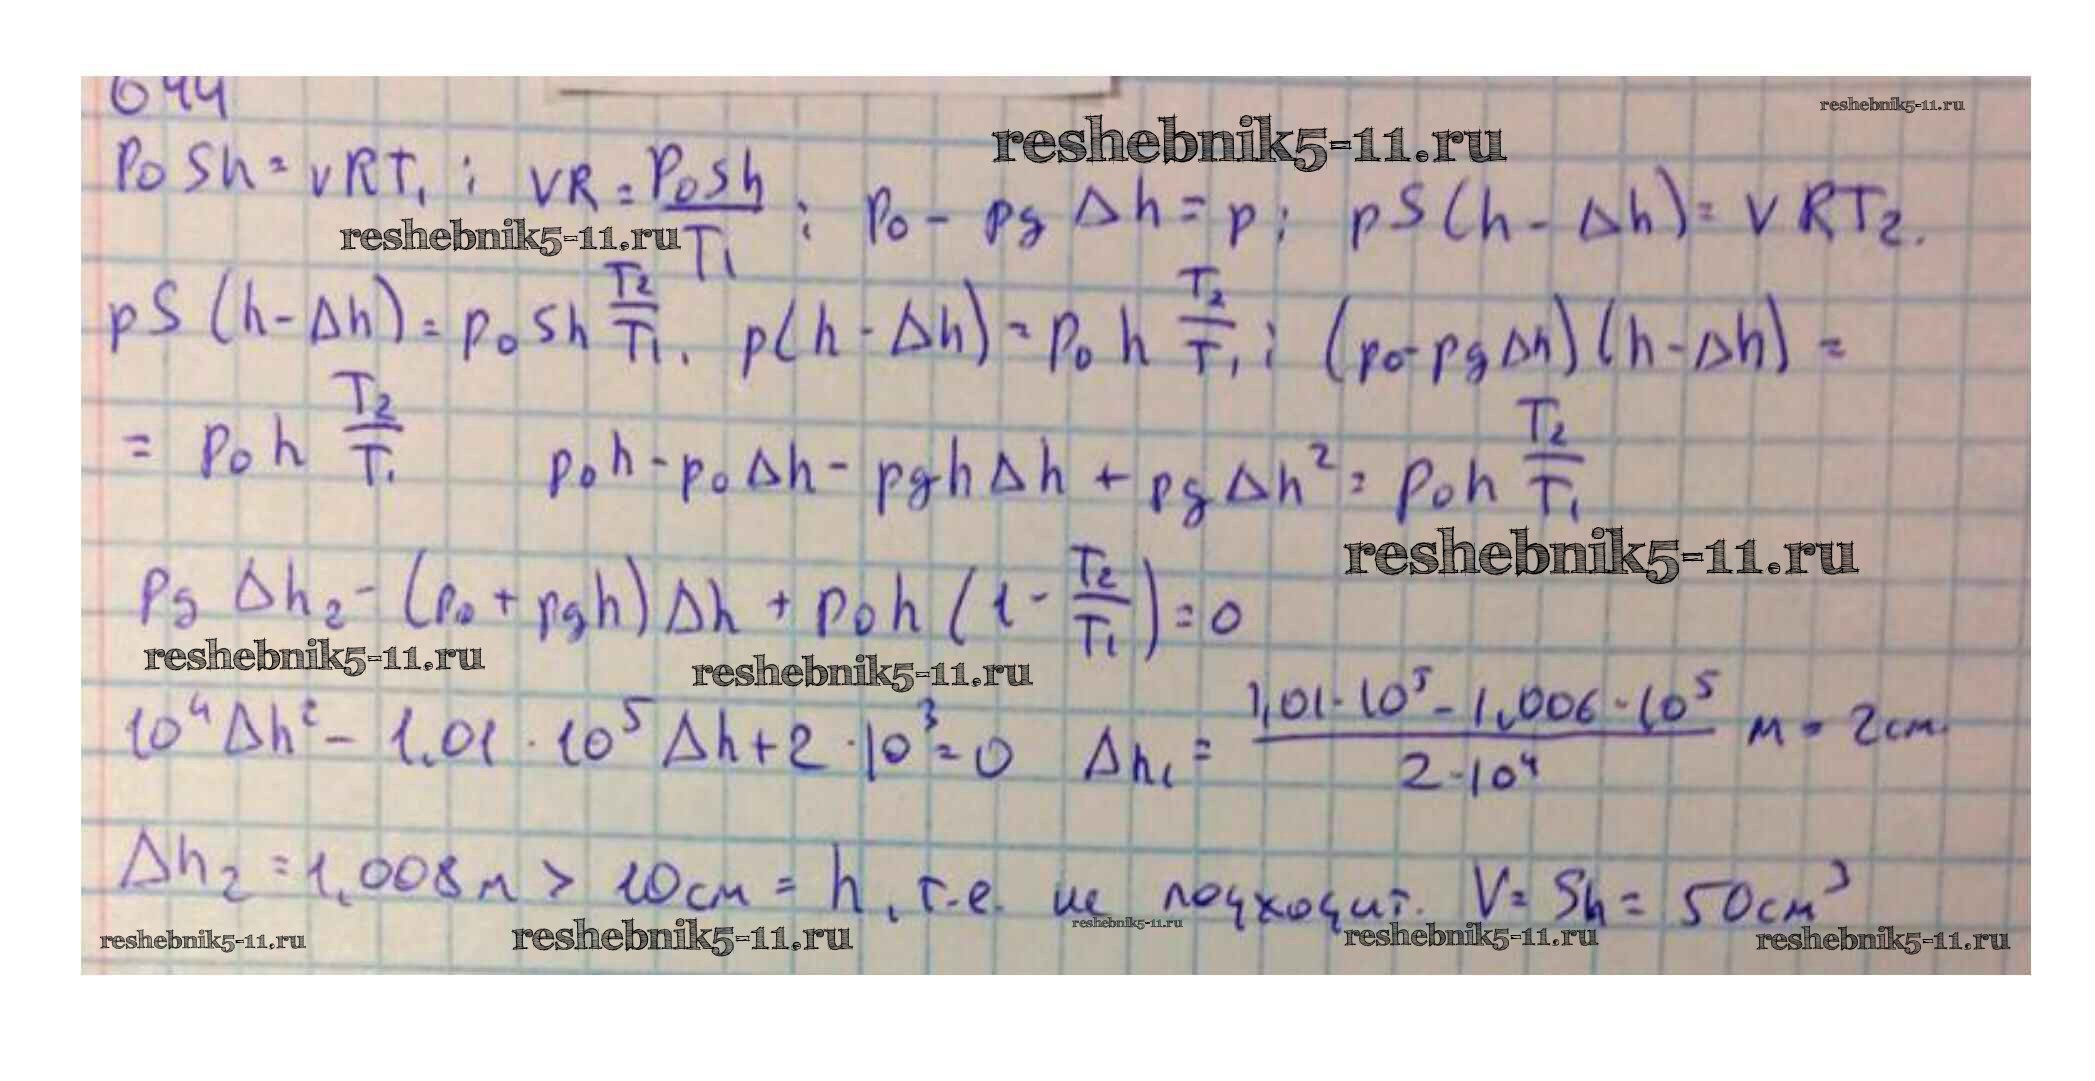 644
reshebnik5-11.ru
reshebnik5-11.ru
P₀Sh = νRT₁; νR = P₀Sh/T₁; p₀ - ρgΔh = p; pS(h - Δh) = νRT₂.
reshebnik5-11.ru
pS(h - Δh) = p₀Sh T₂/T₁. p(h - Δh) = p₀h T₂/T₁; (p₀ - ρgΔh)(h - Δh) =
= p₀h T₂/T₁ p₀h - p₀Δh - ρghΔh + ρgΔh² = p₀h T₂/T₁
reshebnik5-11.ru
ρgΔh₂ - (p₀ + ρgh)Δh + p₀h(1 - T₂/T₁) = 0
reshebnik5-11.ru
reshebnik5-11.ru
10⁴Δh² - 1,01·10⁵Δh + 2·10³ = 0 Δh₁ = (1,01·10⁵ - 1,006·10⁵)/(2·10⁴) м = 2см.
Δh₂ = 1,008м > 10см = h, т.е. не подходит. V = Sh = 50см³
reshebnik5-11.ru
reshebnik5-11.ru
reshebnik5-11.ru
reshebnik5-11.ru
reshebnik5-11.ru